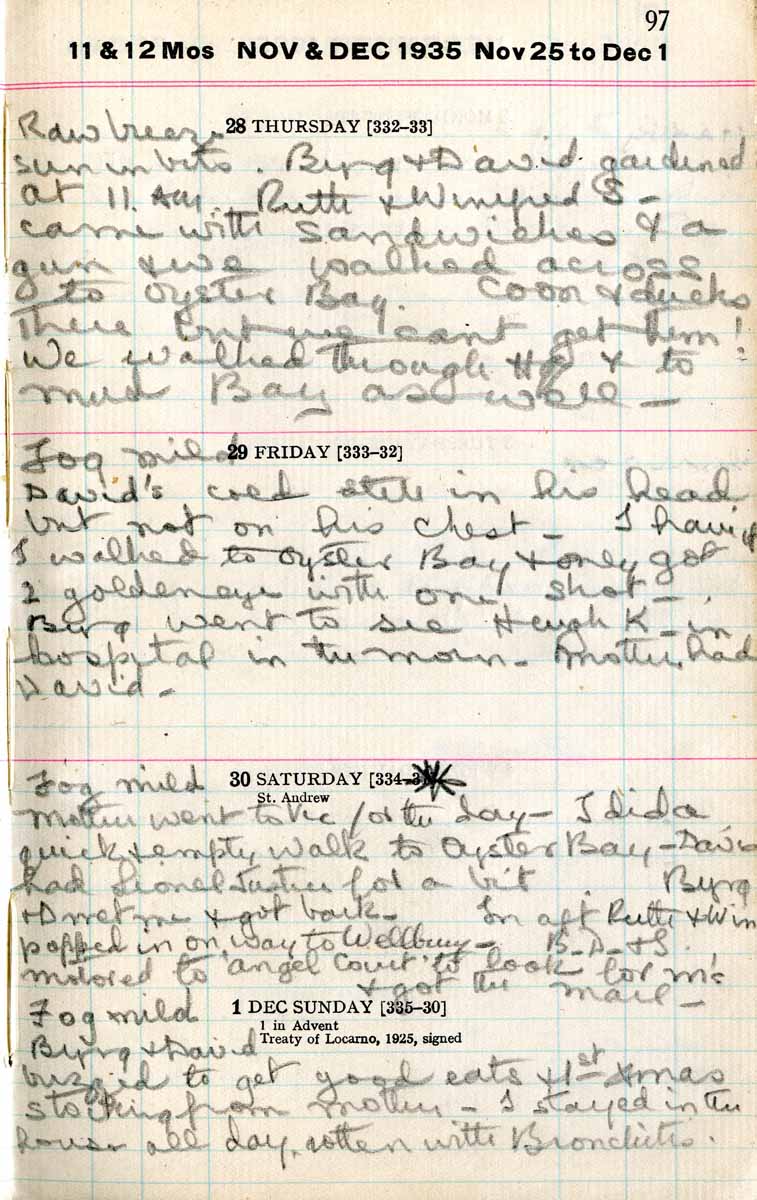 97
11 & 12 Mos NOV & DEC 1935 Nov 25 to Dec 1
28 THURSDAY [332–33]
Raw breeze
sun in bits. Byng & David gardened
at 11 Am. Ruth & Winifred S –
came with sandwiches & a
gun & we walked across
to Oyster Bay. Coon & ducks
There but we cant get them!
We walked through & to
mud Bay as well –
29 FRIDAY [333–32]
Fog mild
David's cold still in his head
but not on his chest – I having
I walked to Oyster Bay & only got
2 goldeneye with one shot –
Byng went to see Hugh K – in
hospital in the morn – Mother had
David –
30 SATURDAY [334–3
St. Andrew
Fog mild
Mother went to Vic for the day – I did a
quick & empty walk to Oyster Bay – David
had Lionel for a bit Byng
& D met me & got back – In aft Ruth & Win
popped in on way to Wellbury – B – D – & S.
motored to 'Angel Court' to look for
& got the mail –
1 DEC SUNDAY [335–30]
1 in Advent
Treaty of Locarno, 1925, signed
Fog mild
Byng & David
buzzed to get good eats & 1st Xmas
stocking from mother – I stayed in the
house all day, rotten with Bronchitis.